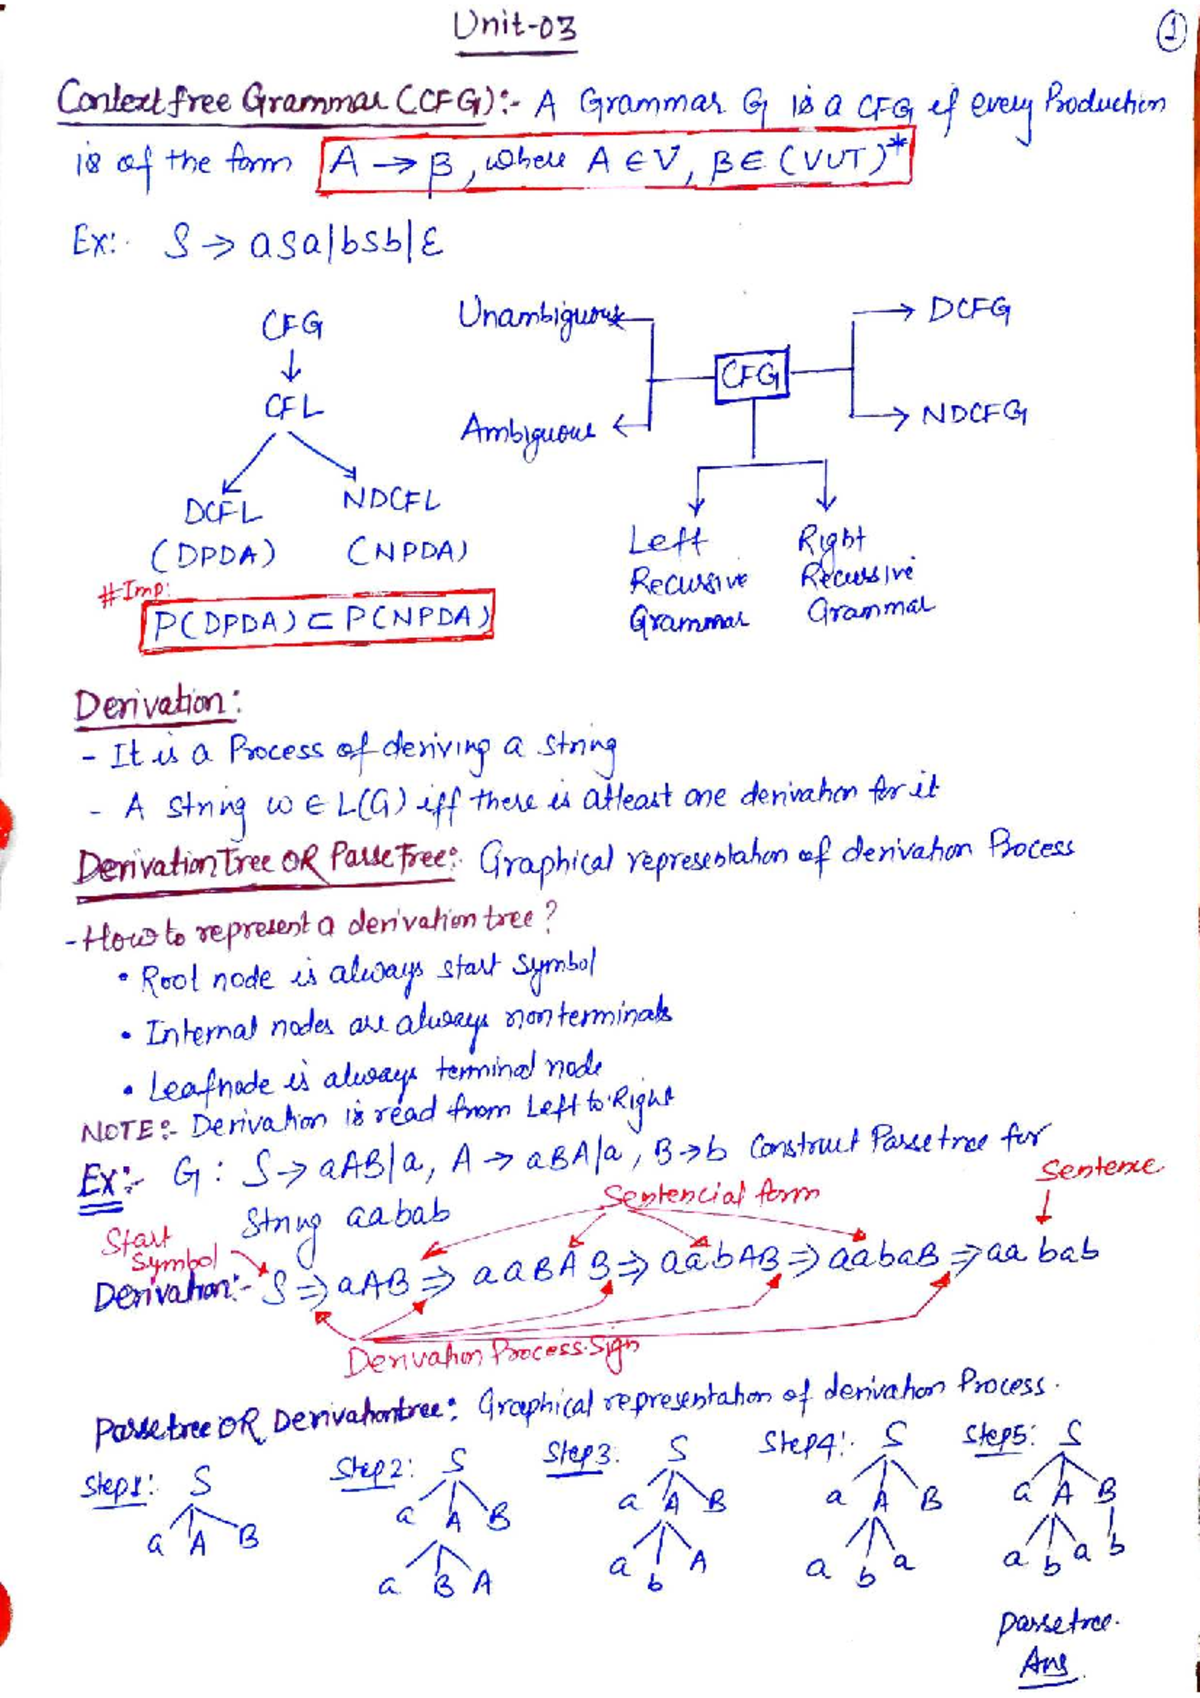 Unit-03
1
Context free Grammar (CFG):- A Grammar G is a CFG if every Production
is of the form A → β, where A ∈ V, β ∈ (VUT)*
Ex:- S → aSa|bSb|ε
CFG
CFL
DCFL NDCFL
(DPDA) (NPDA)
#Imp:
P(DPDA) ⊂ P(NPDA)
Unambiguous
Ambiguous
CFG
DCFG
NDCFG
Left Recursive Grammar
Right Recursive Grammar
Derivation:
- It is a Process of deriving a string
- A string w ∈ L(G) iff there is atleast one derivation for it
Derivation Tree OR Parse Tree:- Graphical representation of derivation Process
- How to represent a derivation tree?
• Root node is always start symbol
• Internal nodes are always non terminals
• Leaf node is always terminal node
NOTE:- Derivation is read from Left to Right
Ex:- G: S → aAB|a, A → aBA|a, B → b Construct Parse tree for
String aabab
Sentencial form
Sentence
Start Symbol
Derivation:- S ⇒ aAB ⇒ aaBAB ⇒ aabAB ⇒ aabaB ⇒ aabab
Derivation Process Sign
Parse tree OR Derivation tree: Graphical representation of derivation Process.
Step1: S
a A B
Step2: S
a A B
a B A
Step3: S
a A B
a b A
Step4: S
a A B
a b a
Step5: S
a A B
a b a b
Parse tree.
Ans